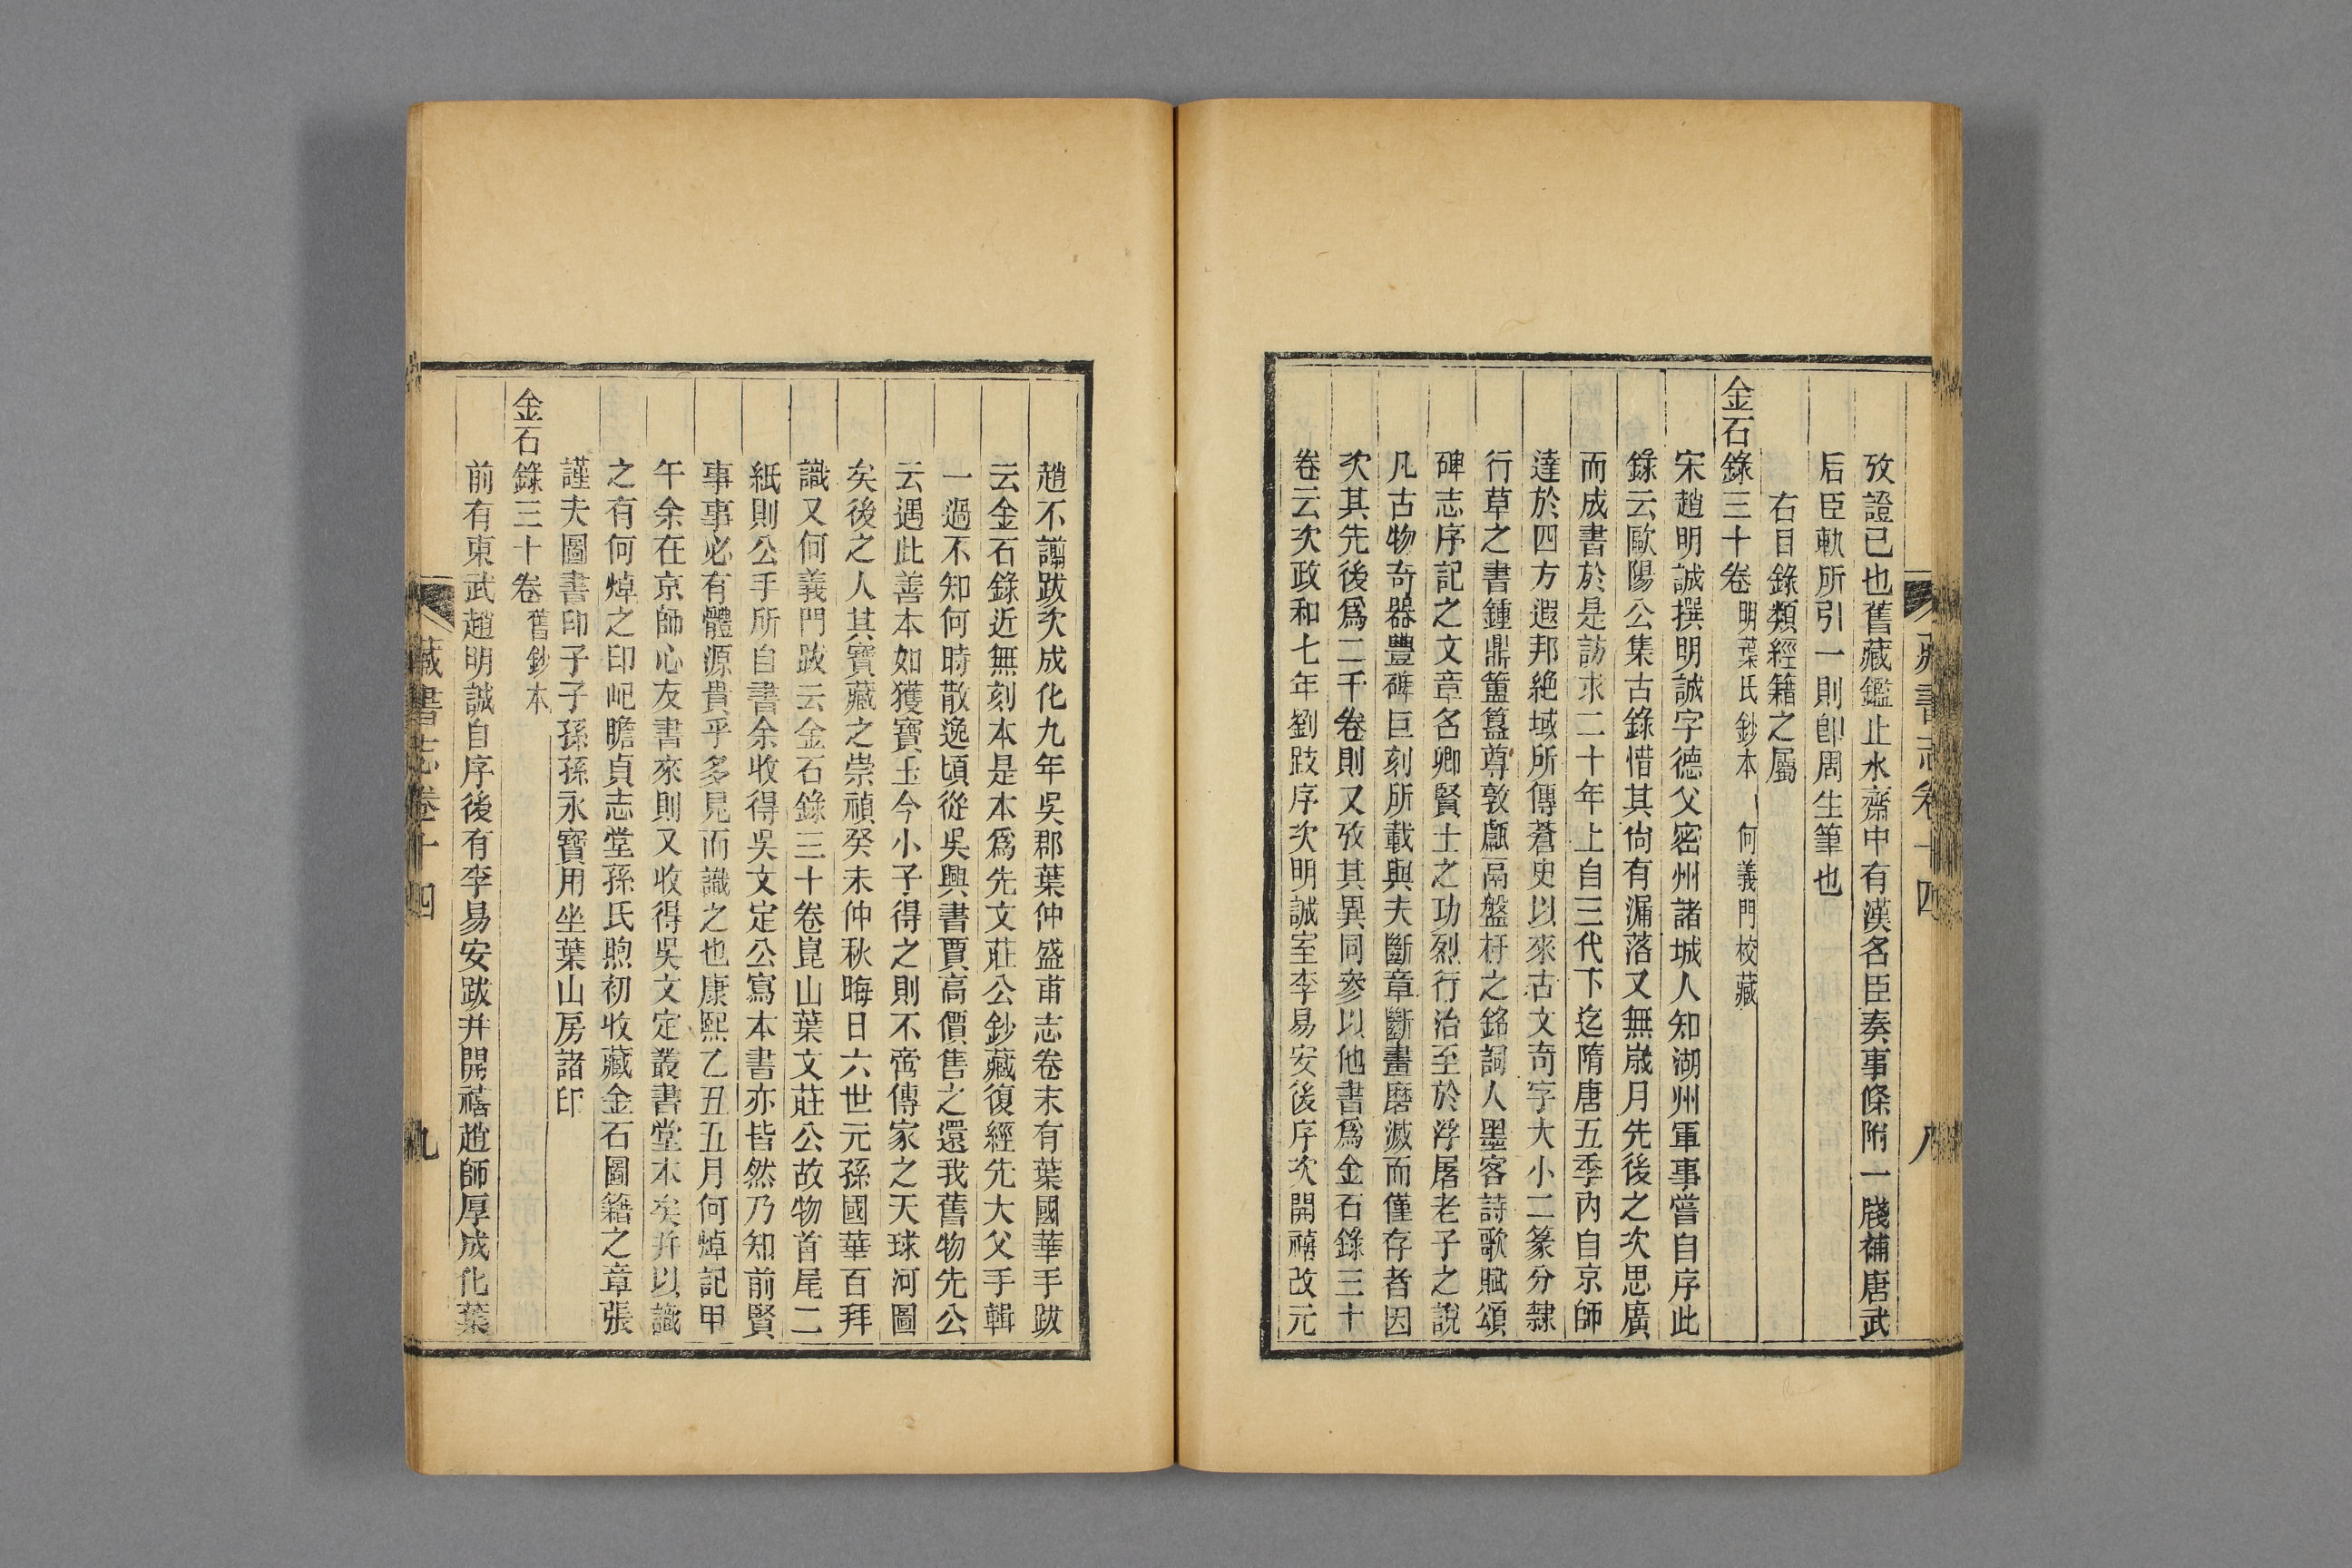 藏書志卷十四　八
攷證已也舊藏鑑止水齋中有漢名臣奏事條附一牋補唐武
后臣軌所引一則卽周生筆也
右目錄類經籍之屬
金石錄三十卷 明葉氏鈔本 何義門校藏
宋趙明誠撰明誠字德父密州諸城人知湖州軍事嘗自序此
錄云歐陽公集古錄惜其尙有漏落又無歲月先後之次思廣
而成書於是訪求二十年上自三代下迄隋唐五季內自京師
達於四方遐邦絕域所傳蒼史以來古文奇字大小二篆分隸
行草之書鍾鼎簠簋尊敦甗鬲盤杅之銘詞人墨客詩歌賦頌
碑志序記之文章名卿賢士之功烈行治至於浮屠老子之說
凡古物奇器豐碑巨刻所載與夫斷章斷畫磨滅而僅存者因
次其先後爲二千卷則又攷其異同參以他書爲金石錄三十
卷云次政和七年劉跂序次明誠室李易安後序次開禧改元
趙不譾跋次成化九年吳郡葉仲盛甫志卷末有葉國華手跋
云金石錄近無刻本是本爲先文莊公鈔藏復經先大父手輯
一過不知何時散逸頃從吳興書賈高價售之還我舊物先公
云遇此善本如獲寶玉今小子得之則不啻傳家之天球河圖
矣後之人其寶藏之崇禎癸未仲秋晦日六世元孫國華百拜
識又何義門跋云金石錄三十卷崑山葉文莊公故物首尾二
紙則公手所自書余收得吳文定公寫本書亦皆然乃知前賢
事事必有體源貴乎多見而識之也康熙乙丑五月何焯記甲
午余在京師心友書來則又收得吳文定叢書堂本矣并以識
之有何焯之印屺瞻貞志堂孫氏煦初收藏金石圖籍之章張
謹夫圖書印子子孫孫永寶用坐葉山房諸印
金石錄三十卷 舊鈔本
前有東武趙明誠自序後有李易安跋并開禧趙師厚成化葉
藏書志卷十四　九